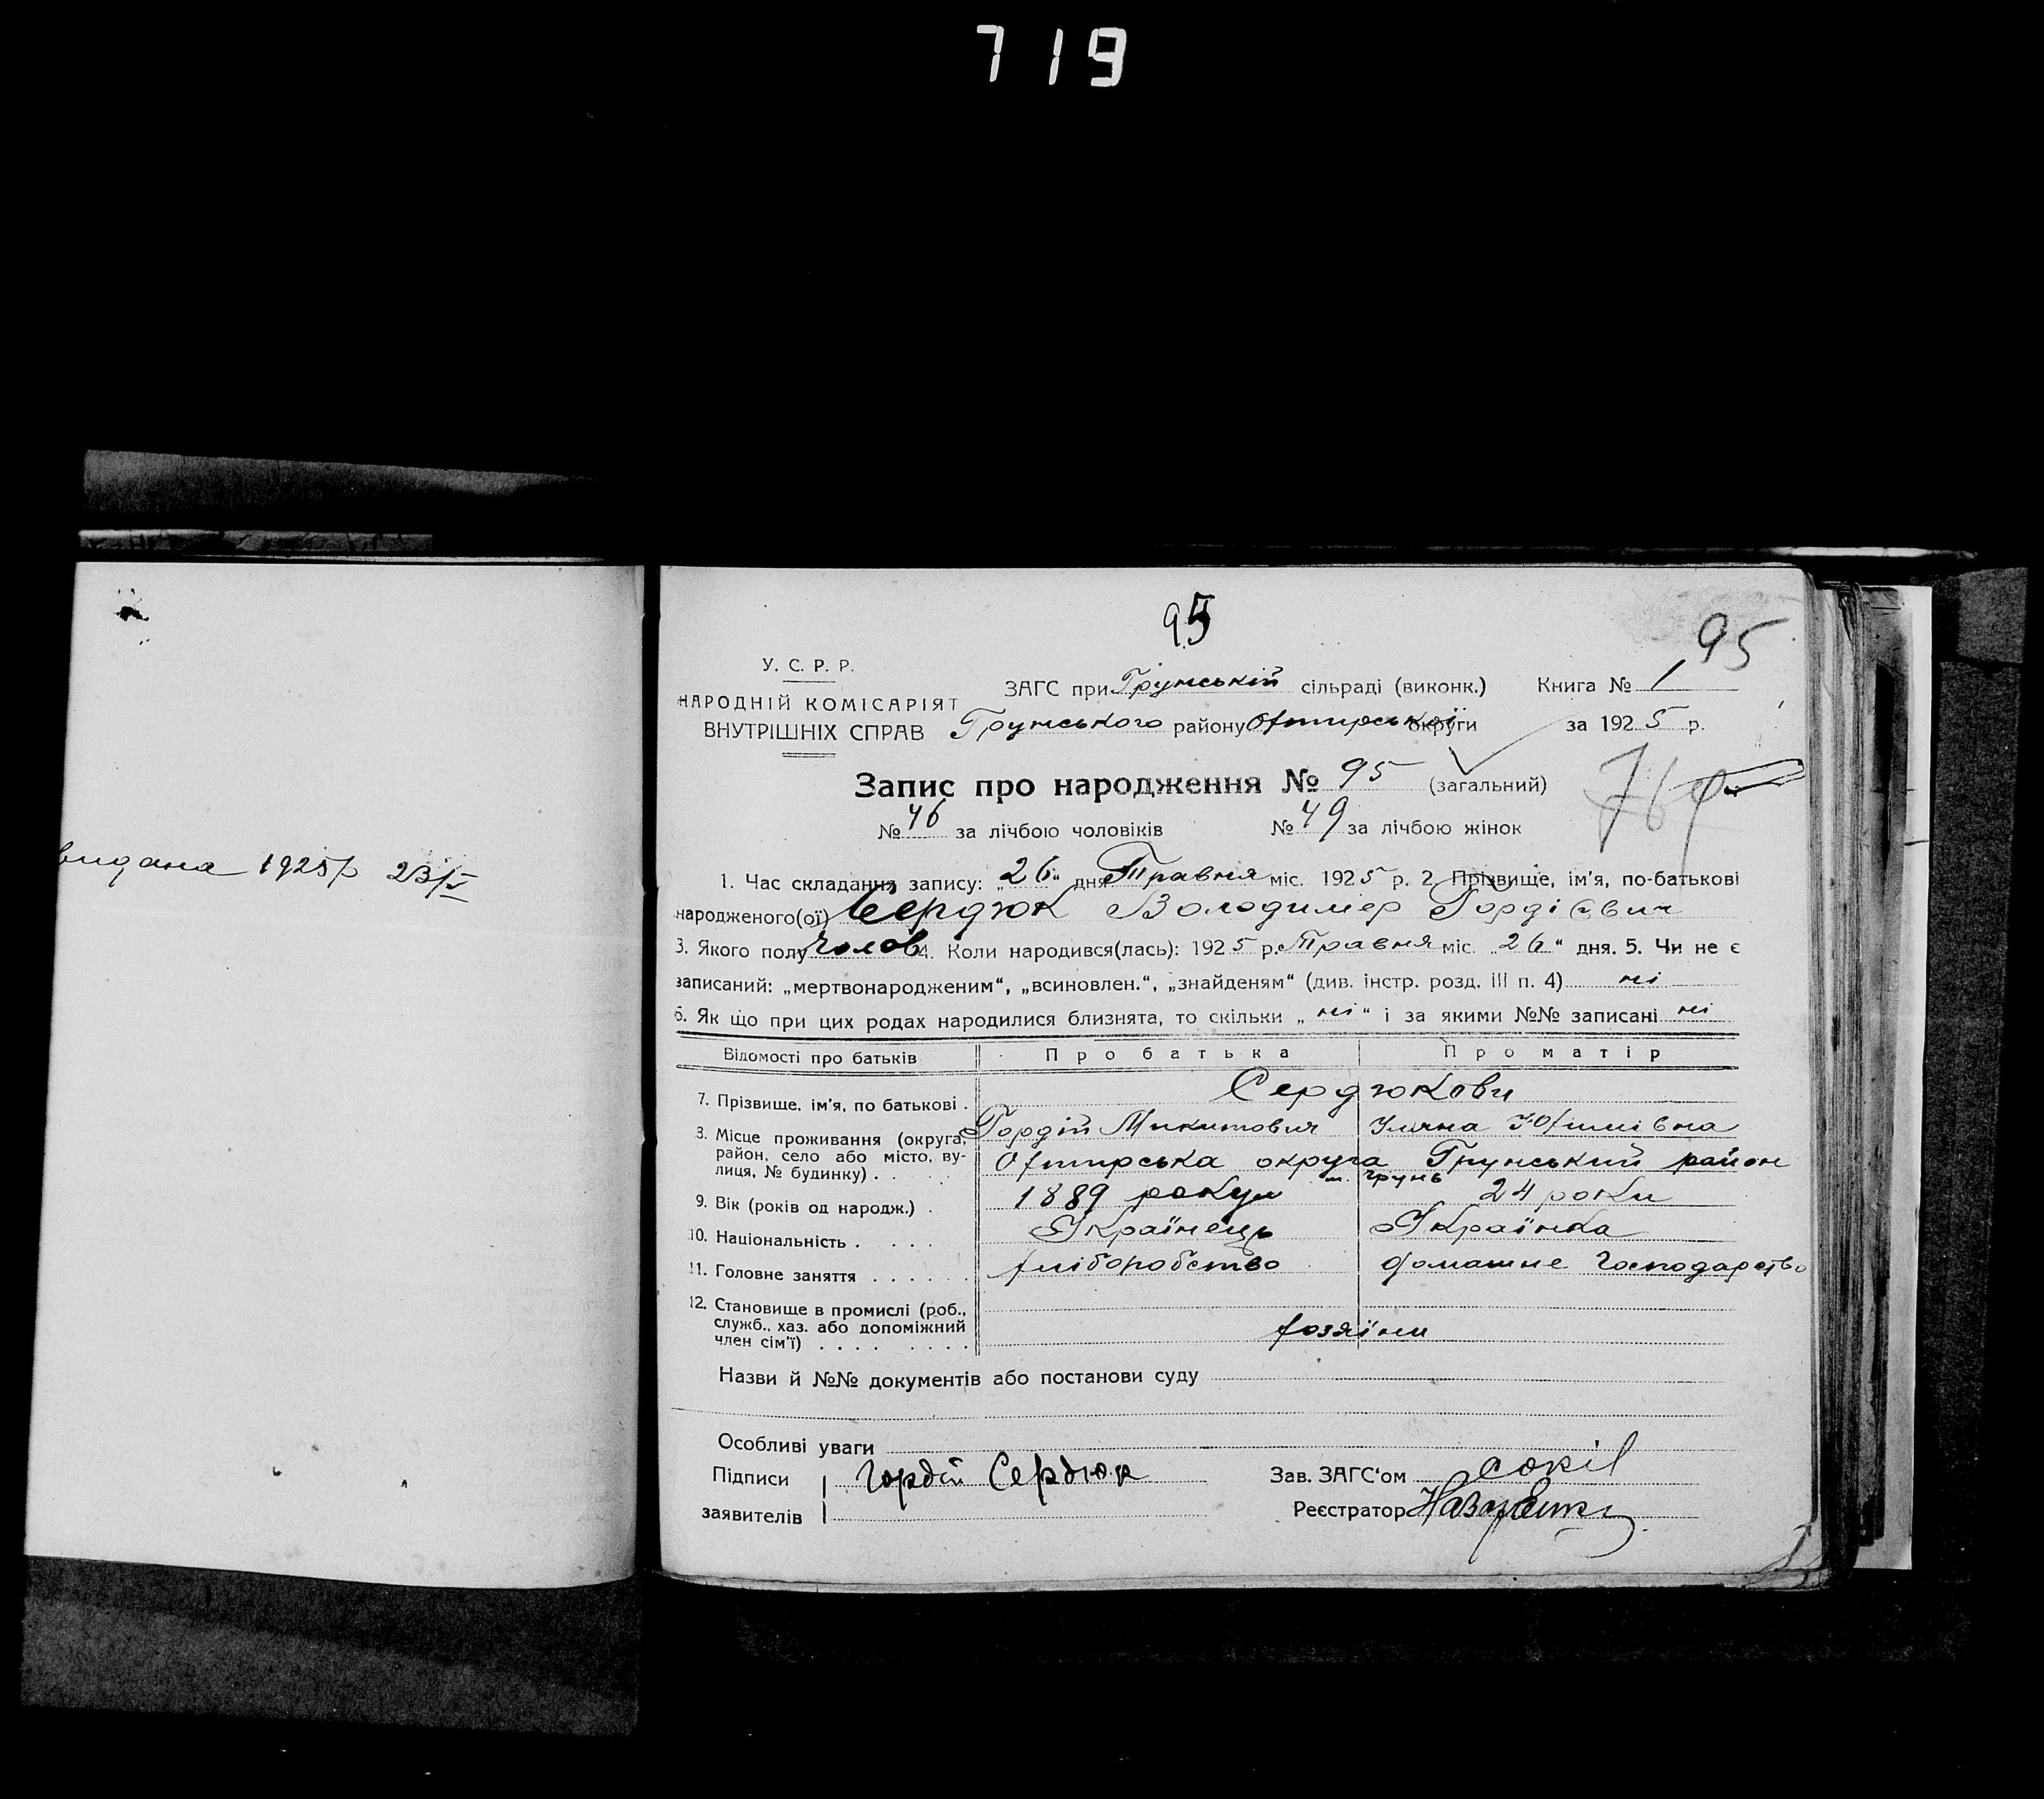 719
95
95
У. С. Р. Р.
НАРОДНІЙ КОМІСАРІЯТ
ВНУТРІШНІХ СПРАВ
ЗАГС при Грунській сільраді (виконк.) Книга № 1
Грунського району Охтирської округи за 1925 р.
Запис про народження № 95 (загальний)
№ 46 за лічбою чоловіків № 49 за лічбою жінок
видана 1925р 23/V
1. Час складання запису: „26“ дня Травня міс. 1925 р. 2. Прізвище, ім'я, по-батькові
народженого(ої) Сердюк Володимер Гордієвич
3. Якого полу Чолов 4. Коли народився(лась): 1925 р. Травня міс. „26“ дня. 5. Чи не є
записаний: „мертвонародженим“, „всиновлен.“, „знайденям“ (див. інстр. розд. III п. 4) ні
6. Як що при цих родах народилися близнята, то скільки „ні“ і за якими №№ записані ні
Відомості про батьків Про батька Про матір
Сердюкови
7. Прізвище, ім'я, по батькові . Гордій Микитович Уляна Юхимівна
8. Місце проживання (округа, район, село або місто, вулиця, № будинку) . . . Охтирська округа Грунський район
м. Грунь
9. Вік (років од народж.) . 1889 року 24 роки
10. Національність . . . . Українець Українка
11. Головне заняття . . . . . . хліборобство домашне господарство
12. Становище в промислі (роб., служб., хаз. або допоміжний член сім'ї) . . . . . . . . хозяїни
Назви й №№ документів або постанови суду
Особливі уваги
Підписи Гордій Сердюк Зав. ЗАГС'ом Сокіл
заявителів Реєстратор